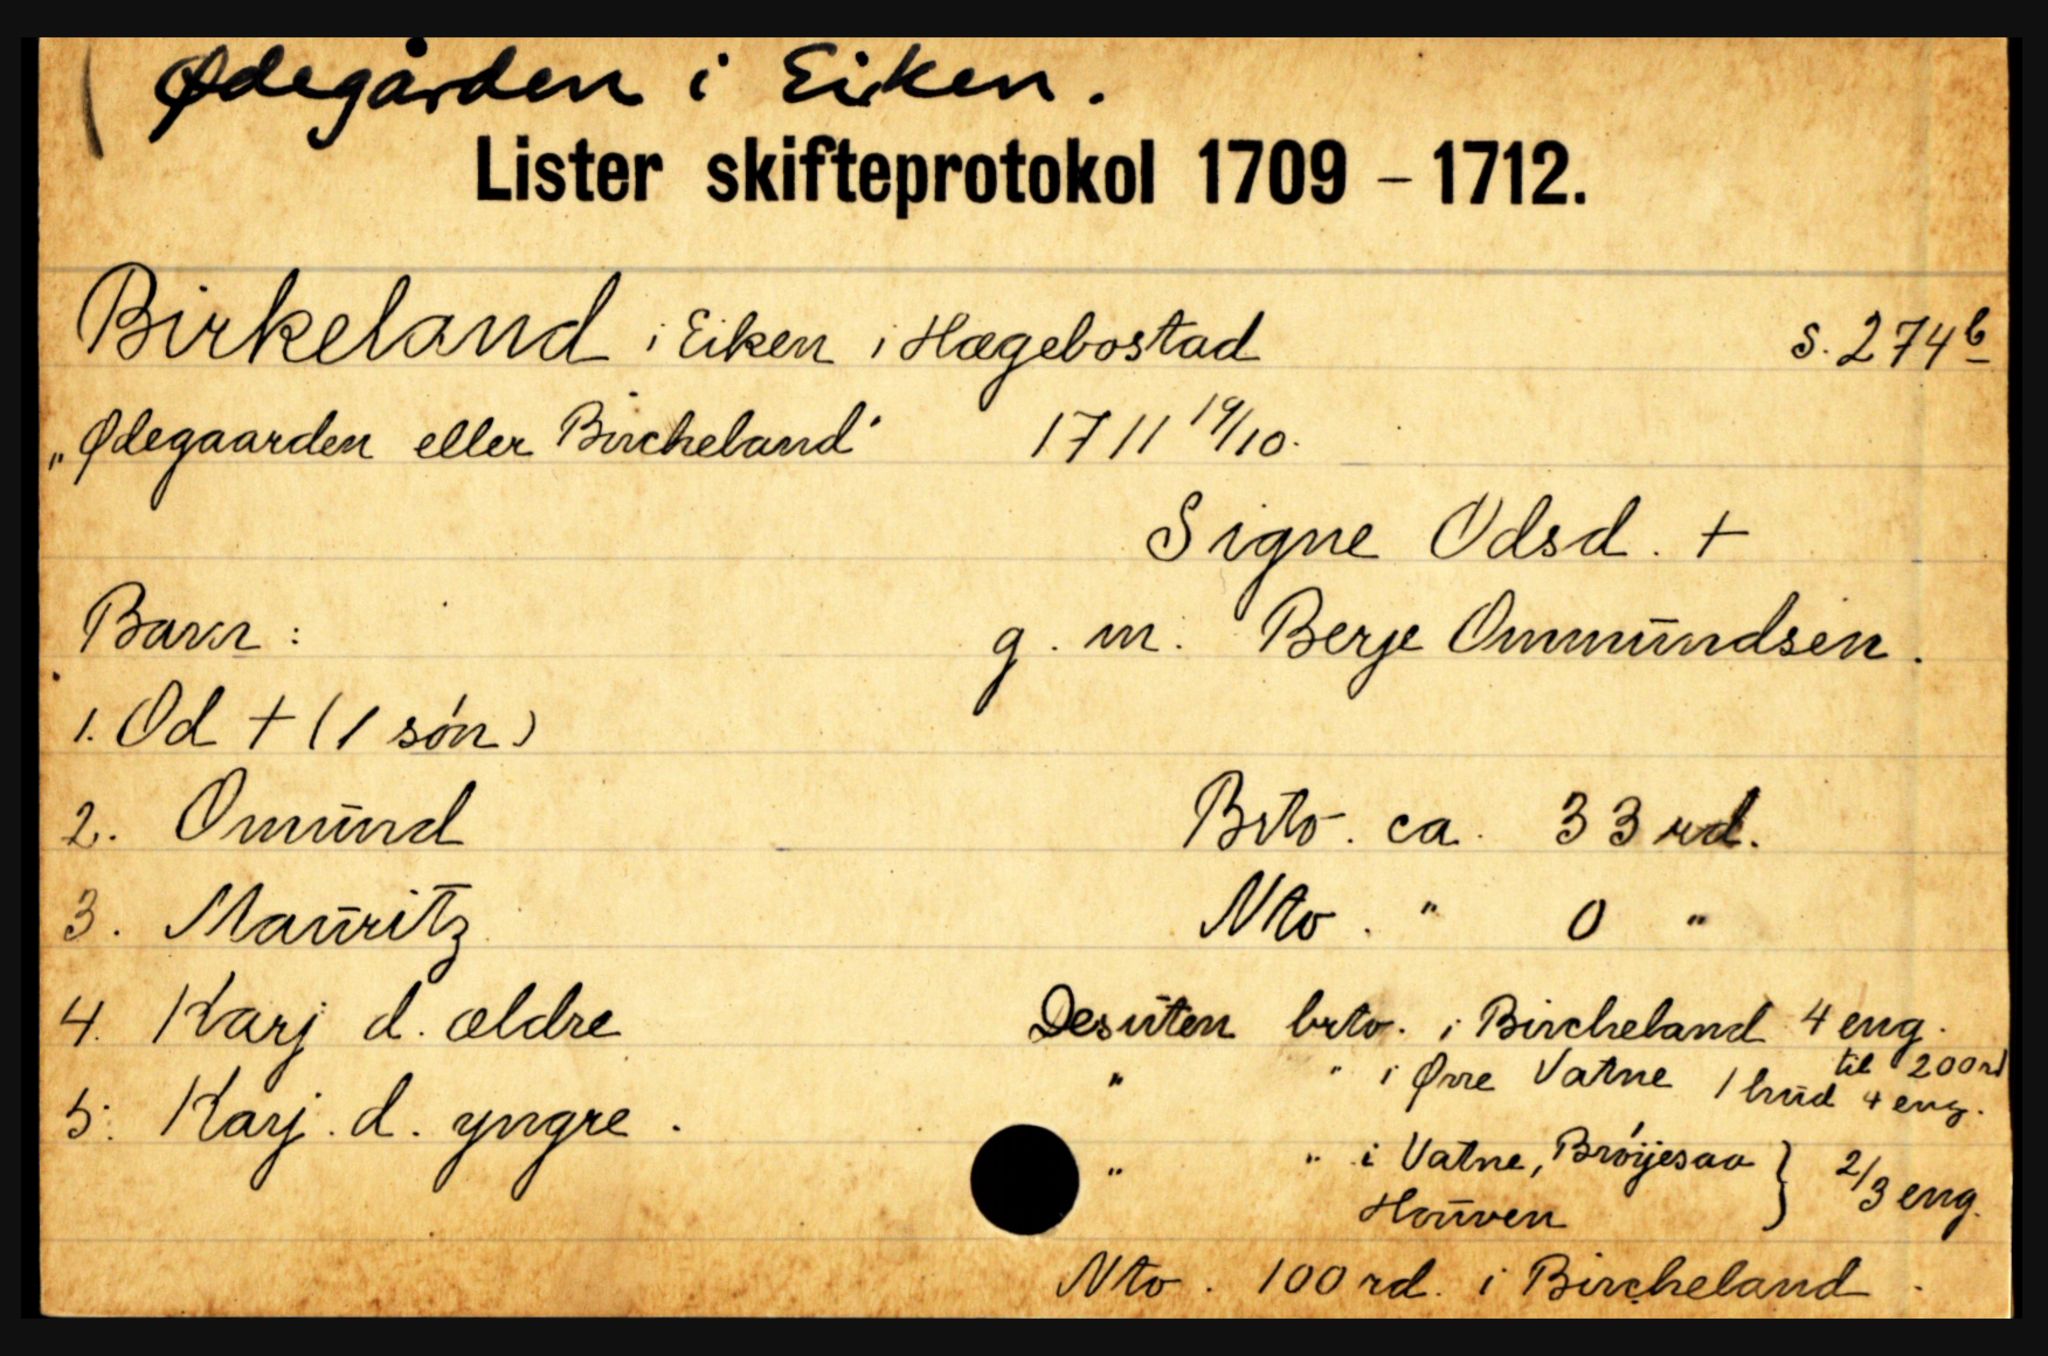 Ødegården i Eiken.
Lister skifteprotokol 1709 - 1712.
Birkeland i Eiken i Hægebostad s. 274b
„Ødegaarden eller Bircheland" 1711 19/10.
Signe Odsd. +
Barn: g. m. Berje Ommundsen.
1. Od + (1 søn)
2. Omund Brto. ca. 33 rd.
3. Mauritz Nto. " 0 "
4. Karj d. ældre Desuten brto. i Bircheland 4 eng.
til 200 rd
" " i Øvre Vatne 1 hud 4 eng.
5. Karj. d. yngre.
" " i Vatne, Brøijesaa } 2/3 eng.
Houven
Nto. 100 rd. i Bircheland.